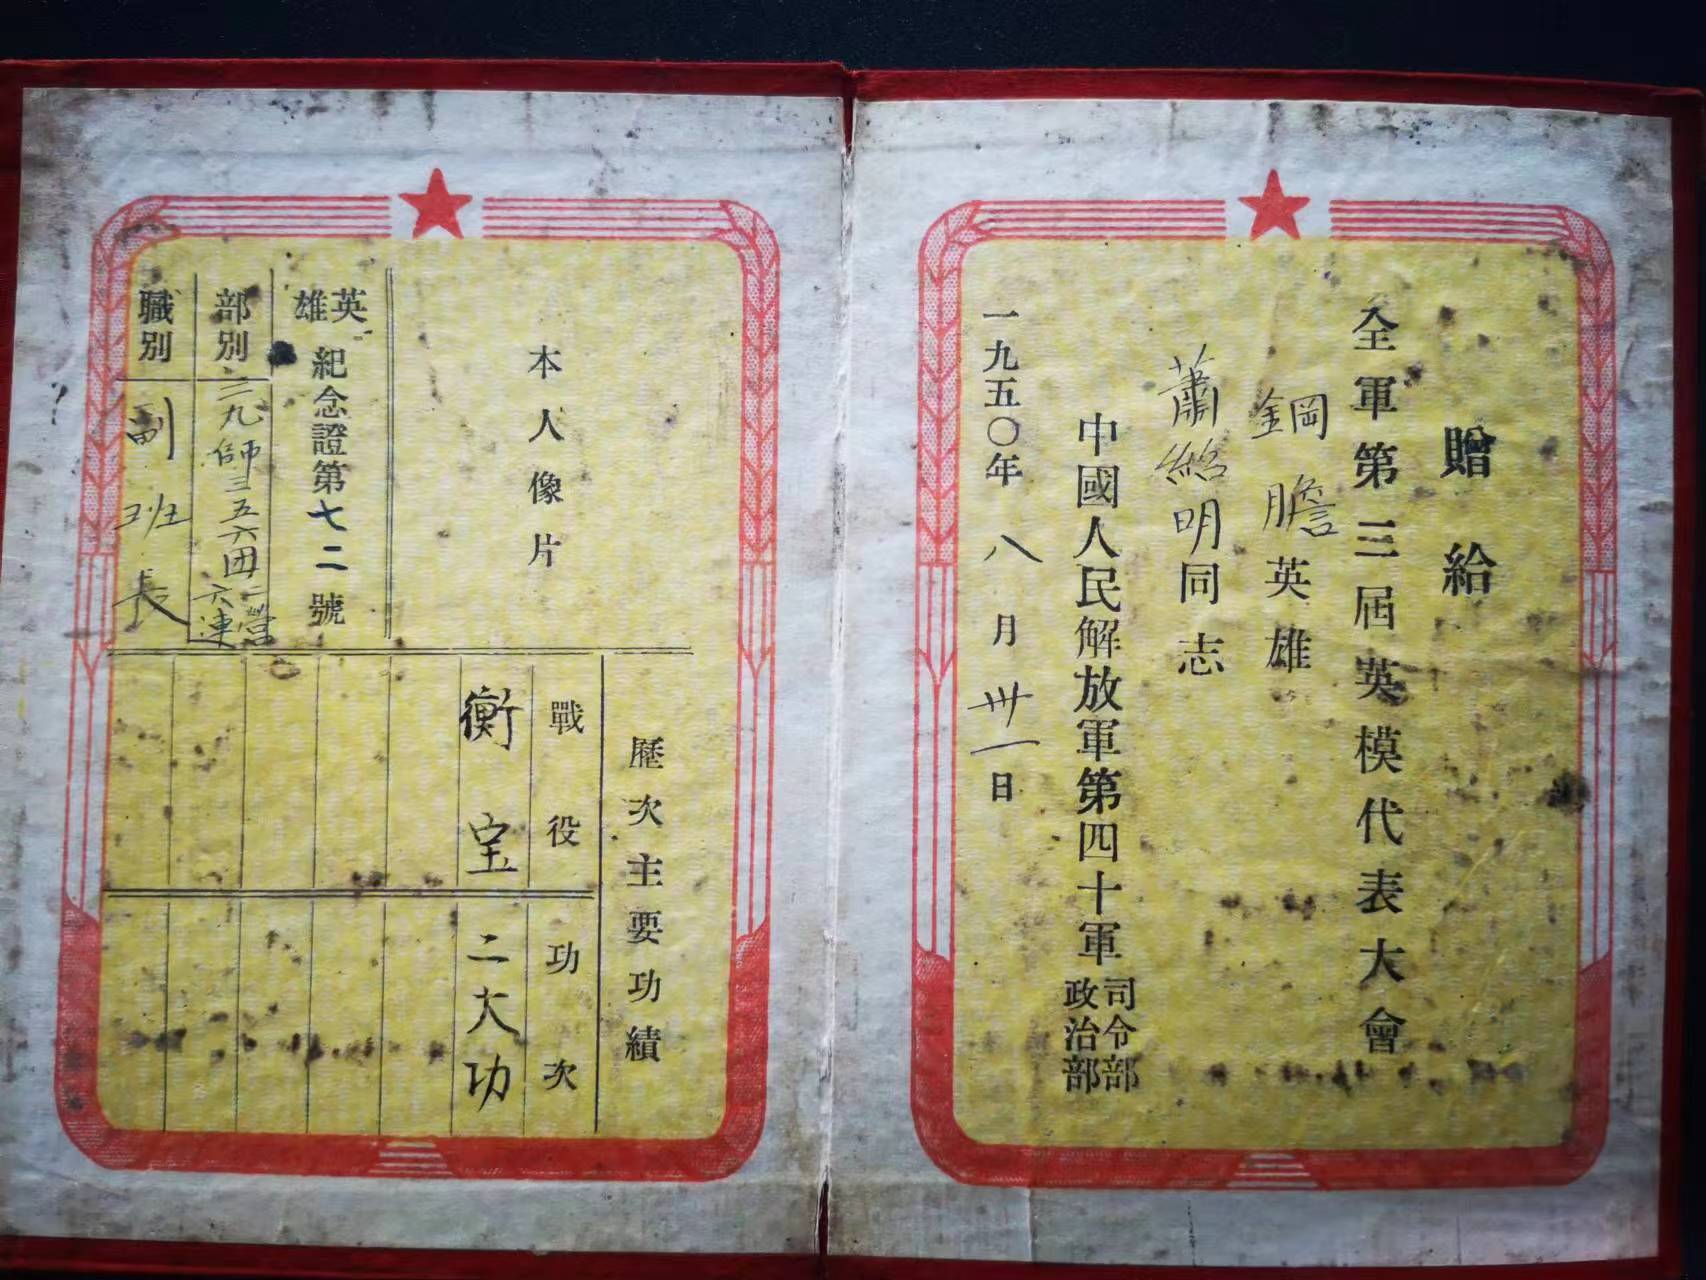 贈給
全軍第三屆英模代表大會
鋼膽英雄
蕭紹明同志
中國人民解放軍第四十軍司令部政治部
一九五〇年八月卅一日
本人像片
英雄紀念證第七二號
部別
三九師三五六团二營六連
職別
副班長
歷次主要功績
戰役
功次
衡宝
二大功